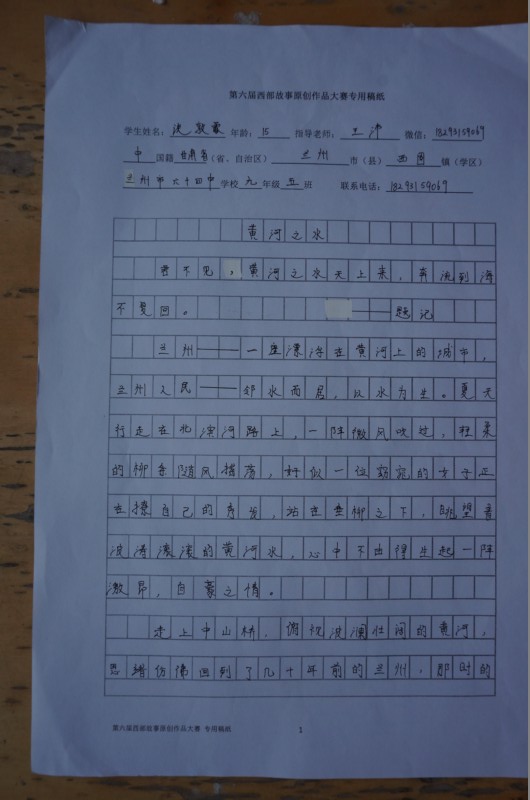 第六届西部故事原创作品大赛专用稿纸
学生姓名：沈毅豪 年龄：15 指导老师：王沛 微信：18293159069
中国籍 甘肃省（省、自治区） 兰州 市（县） 西固 镇（学区）
兰州市六十四中 学校 九 年级 五 班 联系电话：18293159069
黄河之水
君不见，黄河之水天上来，奔流到海
不复回。 ——题记
兰州——一座漂浮在黄河上的城市，
兰州人民——邻水而居，以水为生。夏天
行走在北滨河路上，一阵微风吹过，轻柔
的柳条随风摇荡，好似一位窈窕的女子正
在撩自己的秀发，站在垂柳之下，眺望着
波涛滚滚的黄河水，心中不由得生起一阵
激昂，自豪之情。
走上中山林，俯视波澜壮阔的黄河，
思绪仿佛回到了几十年前的兰州，那时的
第六届西部故事原创作品大赛 专用稿纸
1